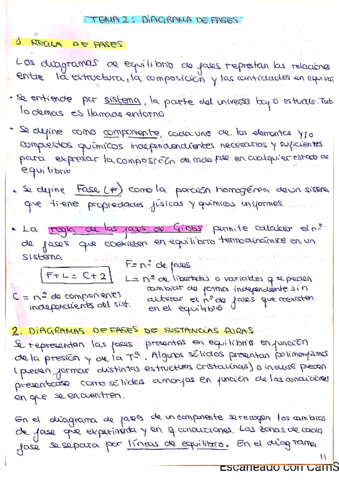 TEMA 2: DIAGRAMA DE FASES
1. REGLA DE FASES
Los diagramas de equilibrio de fases repretan las relaciones
entre la estructura, la composición y las cantidades en equilibrio
- Se entiende por sistema, la parte del universo bajo estudio. Todo
lo demas es llamado entorno
- Se define como componente, cada uno de los elementos y/o
compuestos químicos independientes necesarios y suficientes
para expresar la composición de cada fase en cualquier estado de
equilibrio
- Se define Fase (F) como la porción homogénea de un sistema
que tiene propiedades físicas y químicas uniformes.
- La regla de las fases de Gibbs: permite calcular el nº
de fases que coexisten en equilibrio termodinámico en un
sistema
F = nº de fases
F + L = C + 2
L = nº de libertades o variables q se pueden
cambiar de forma independiente sin
C = nº de componentes
alterar el nº de fases que coexisten
independientes del sist.
en el equilibrio
2. DIAGRAMAS DE FASES DE SUSTANCIAS PURAS
Se representan las fases presentes en equilibrio en función
de la presión y de la Tª. Algunos sólidos presentan polimorfismo
(pueden formar distintas estructuras cristalinas) o incluso pueden
presentarse como sólidos amorfos en función de las condiciones
en que se encuentren.
En el diagrama de fases de un componente se recogen los cambios
de fase que experimenta y en q condiciones. Las zonas de cada
fase se separa por líneas de equilibrio. En el diagrama
11
Escaneado con CamS